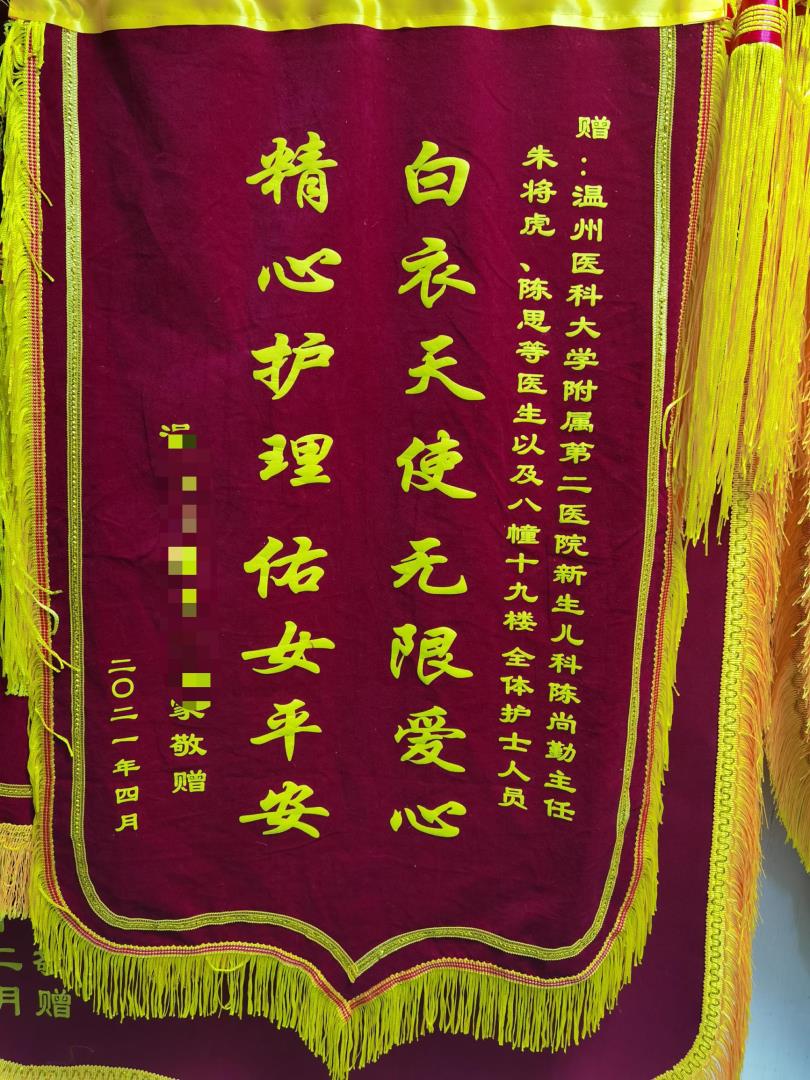 赠：温州医科大学附属第二医院新生儿科陈尚勤主任
朱将虎、陈思等医生以及八幢十九楼 全体护士人员
白衣天使无限爱心
精心护理佑女平安
家敬赠
二〇二一年四月
赠
月